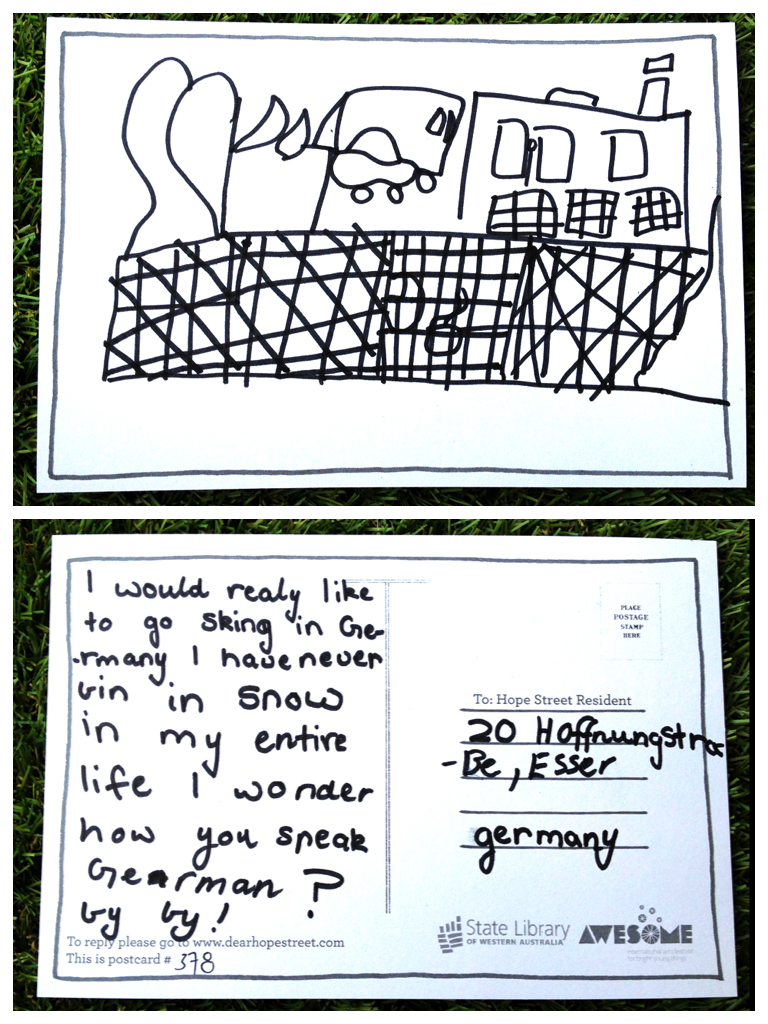 I would realy like
to go sking in Ge-
-rmany I have never
bin in snow
in my entire
life I wonder
how you speak
Gearman ?
by by!
To reply please go to www.dearhopestreet.com
This is postcard # 378
PLACE
POSTAGE
STAMP
HERE
To: Hope Street Resident
20 Hoffnungstra
-Be, Esser
germany
State Library
OF WESTERN AUSTRALIA
AWESOME